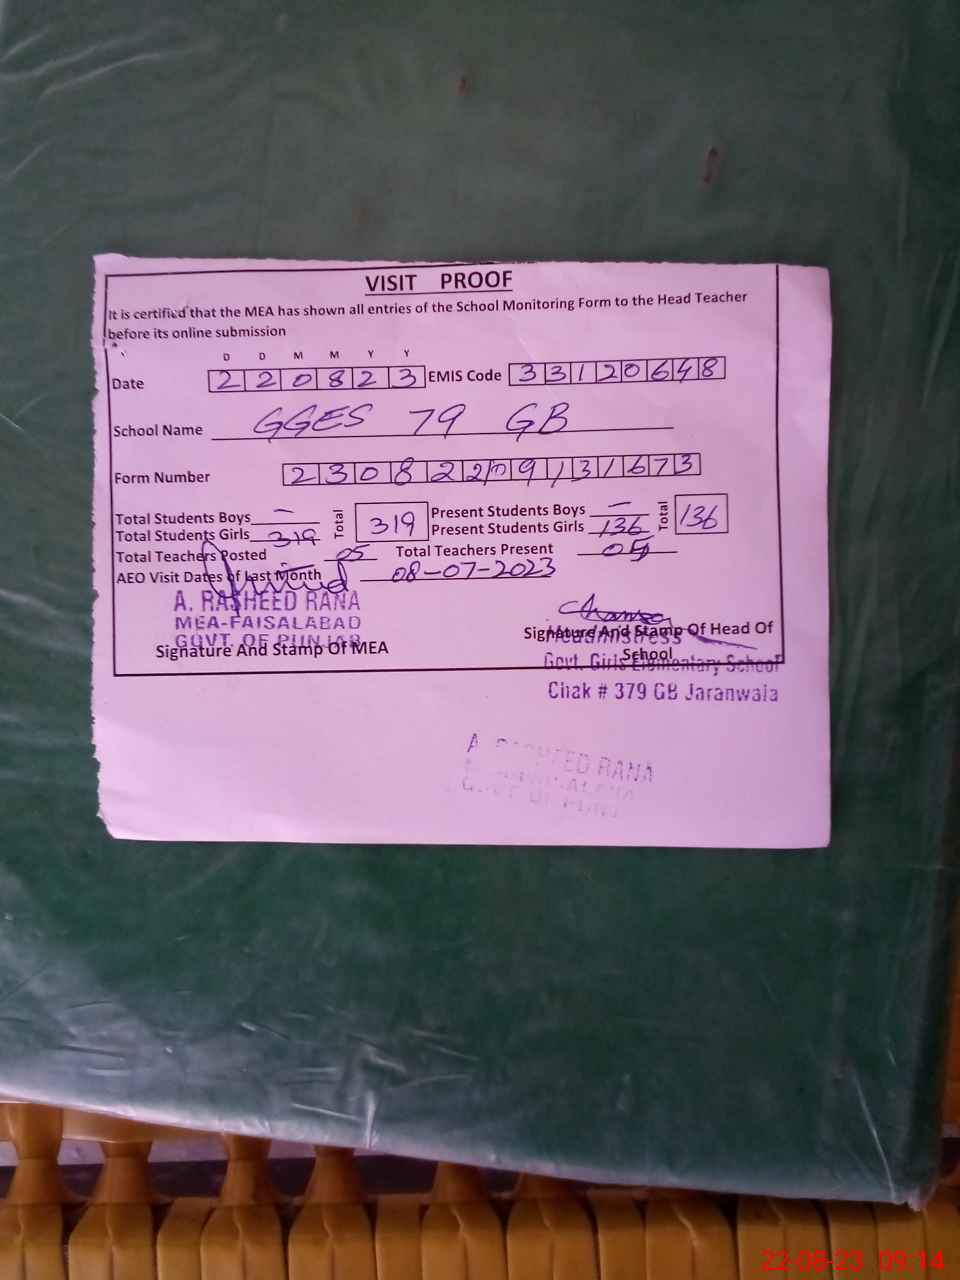 VISIT PROOF
It is certified that the MEA has shown all entries of the School Monitoring Form to the Head Teacher
before its online submission
D D M M Y Y
Date 2 2 0 8 2 3 EMIS Code 3 3 1 2 0 6 4 8
School Name GGES 79 GB
Form Number 2 3 0 8 2 2 0 9 1 3 1 6 7 3
Total Students Boys — Total 319 Present Students Boys — Total 136
Total Students Girls 319 Present Students Girls 136
Total Teachers Posted 05 Total Teachers Present 05
AEO Visit Dates of Last Month 08-07-2023
A. RASHEED RANA
MEA-FAISALABAD
GOVT. OF PUNJAB
Signature And Stamp Of MEA
Signature And Stamp Of Head Of
School
Headmistress
Govt. Girls Elementary School
Chak # 379 GB Jaranwala
A. RASHEED RANA
22-08-23 09:14